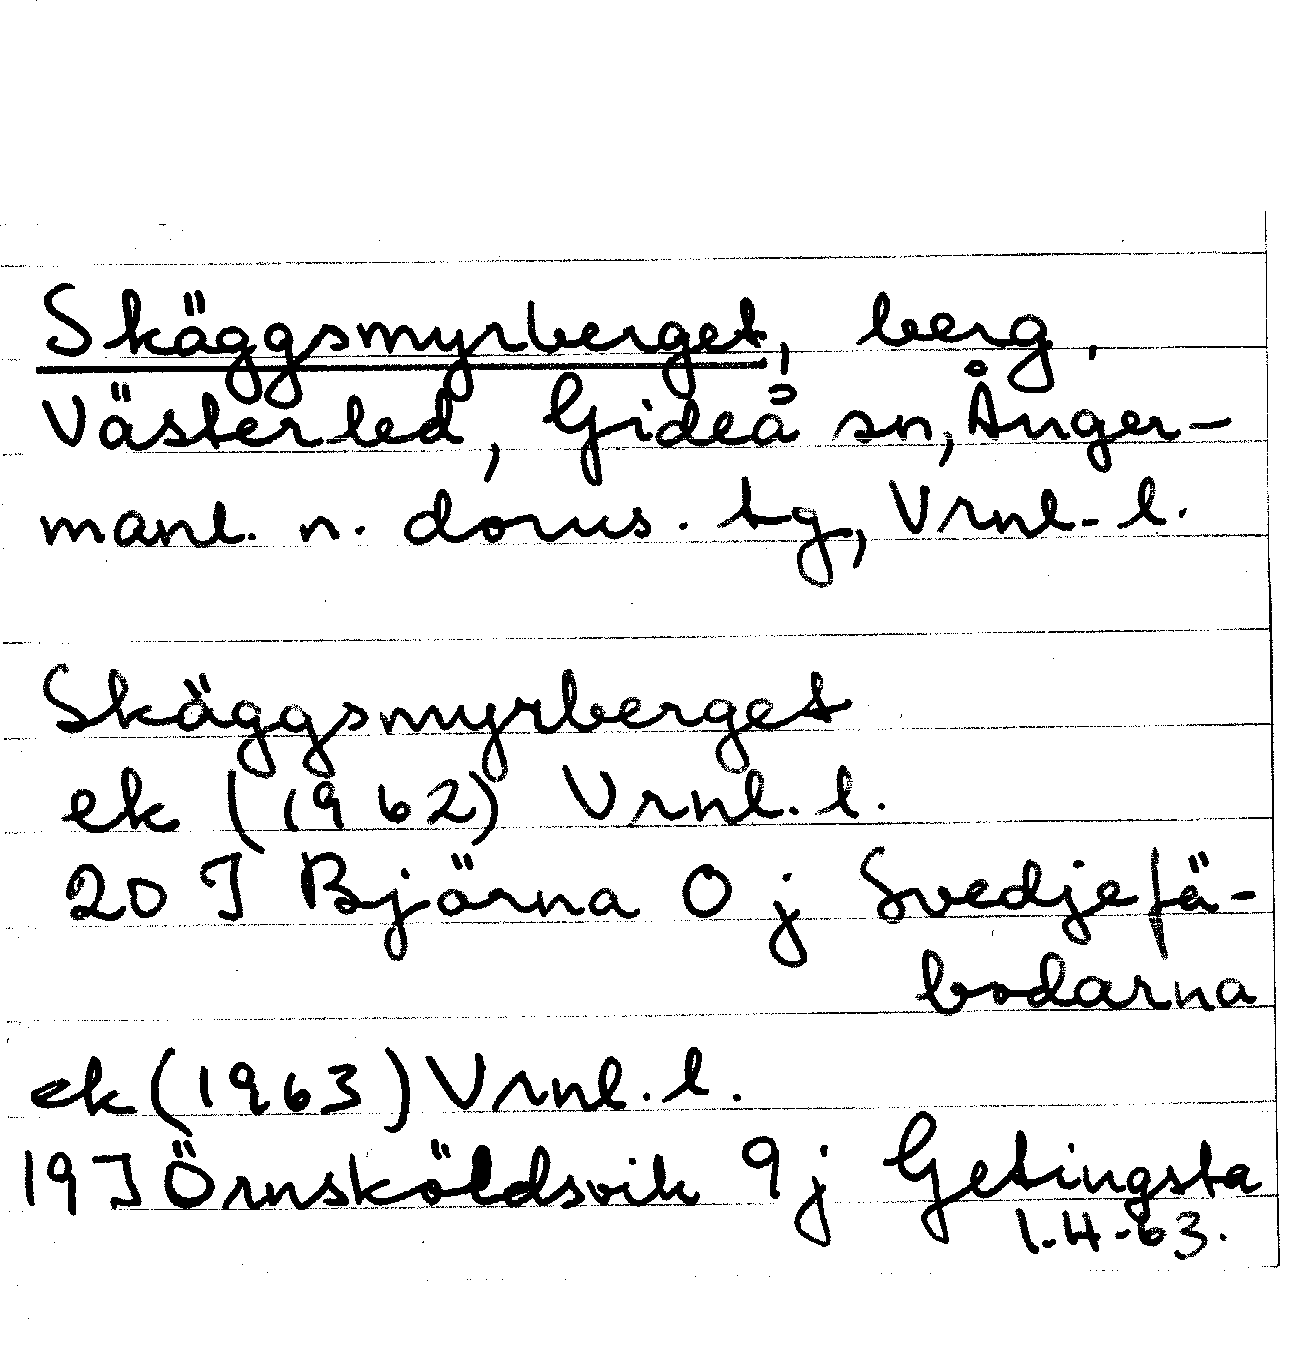 Skäggsmyrberget, berg,
Västerled, Gideå sn, Ånger-
manl. n. doms. tg, Vrnl. l.
Skäggsmyrberget
ek (1962) Vrnl. l.
20 J Björna 0 j Svedjefä-
bodarna
ek (1963) Vrnl. l.
19 J Örnsköldsvik 9 j Getingsta
1.4-63.